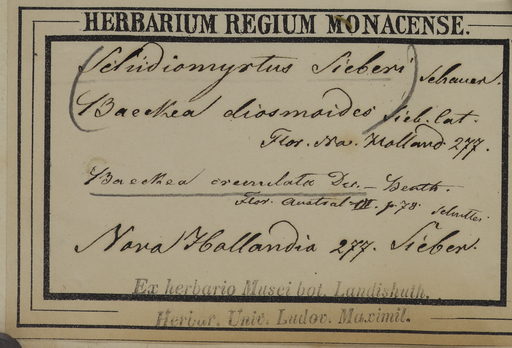 HERBARIUM REGIUM MONACENSE.
(Schidiomyrtus Sieberi) Schauer.
(Baeckea diosmoides) Sieb. Cat.
Flor. No. Holland 277.
Baeckea crenulata Dec. – Benth.
Flor. Austral. III. p. 78
Nova Hollandia 277. Sieber.
Ex herbario Musei bot. Landishuth.
Herbar. Univ. Ludov. Maximil.